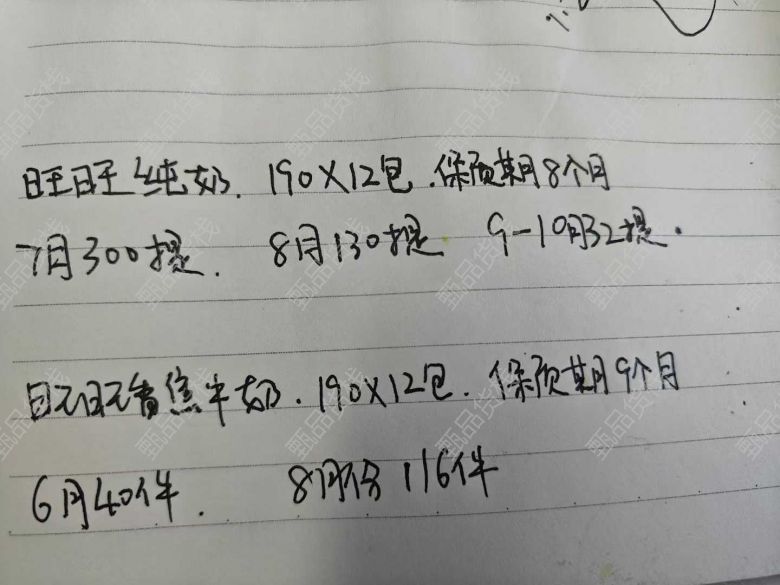 旺旺纯奶. 190X12包.保质期8个月
7月300提. 8月130提 9-10月32提.
旺旺香焦牛奶.190X12包. 保质期9个月
6月40件. 8月份116件
甄品货栈